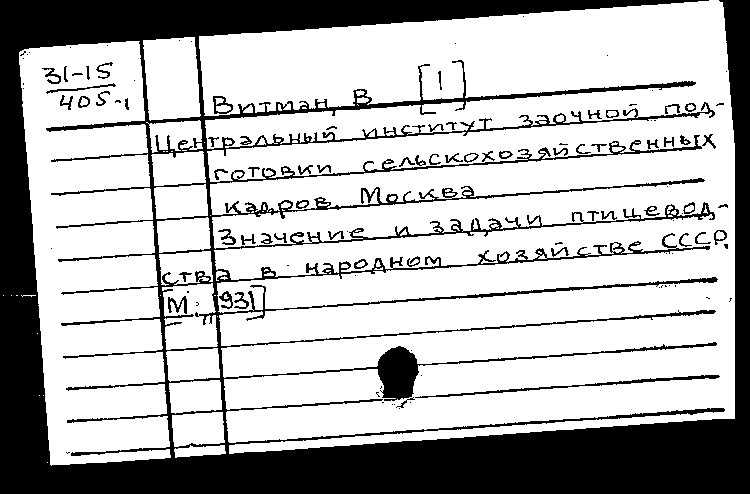 31-15
405-1
Витман, В [1]
Центральный институт заочной под-
готовки сельскохозяйственных
кадров. Москва
Значение и задачи птицевод-
ства в народном хозяйстве СССР.
[М., 1931]